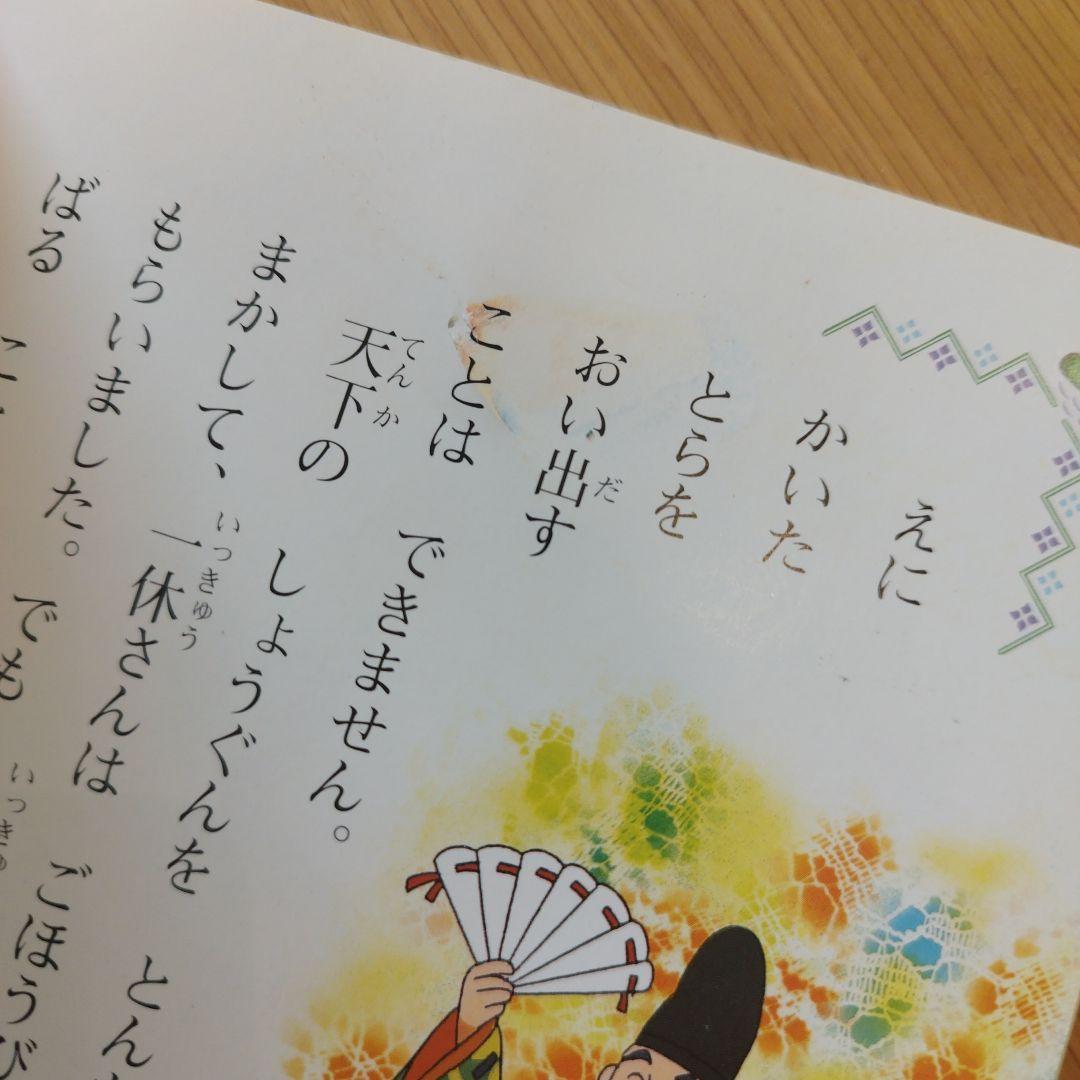 えに
かいた
とらを
おい出す
ことは できません。
天下の しょうぐんを
まかして、 とん
もらいました。 一休さんは
ばる でも ごほうび